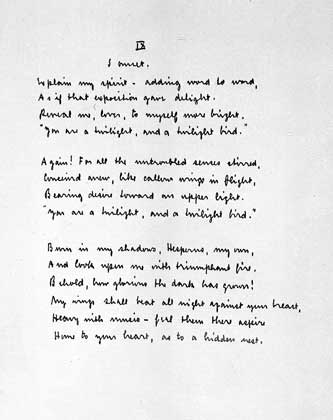 IX
Sonnet.
Explain my spirit - adding word to word,
As if that exposition gave delight.
Reveal me, lover, to myself more bright.
"You are a twilight, and a twilight bird."
Again! For all the untroubled senses stirred,
Conceived anew, like callow wings in flight,
Bearing desire toward an upper light.
"You are a twilight, and a twilight bird."
Burn in my shadows, Hesperus, my own,
And look upon me with triumphant fire.
Behold, how glorious the dark has grown!
My wings shall beat all night against your breast,
Heavy with music - feel them there aspire
Home to your heart, as to a hidden nest.